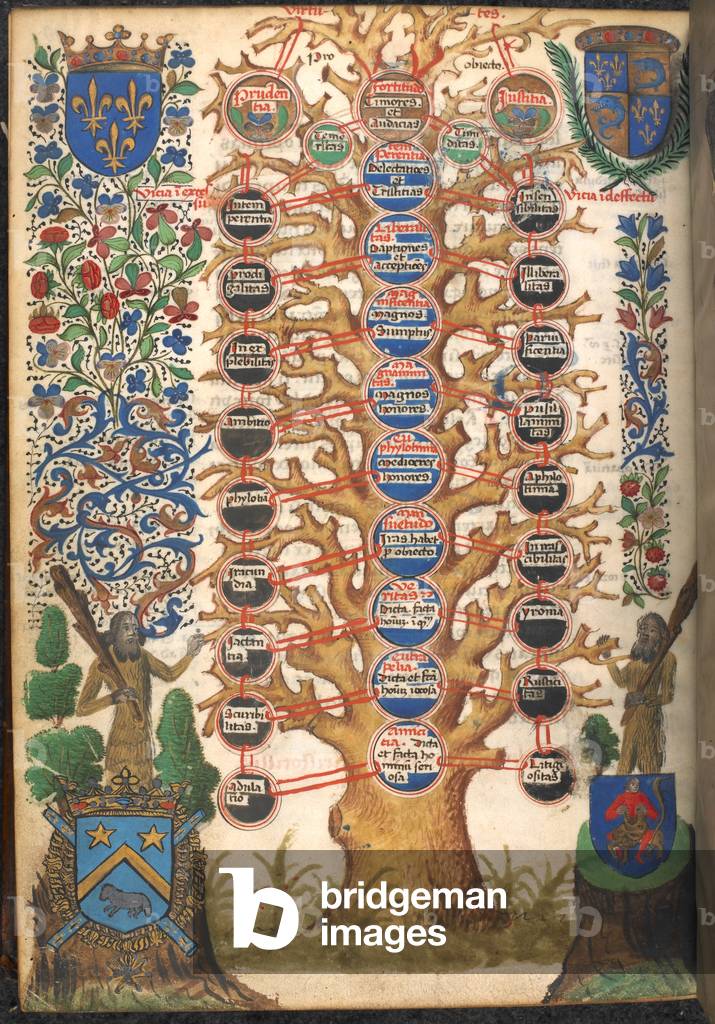 Virtu-
tes.
Pro
obiecto.
Pruden
tia.
fortitudo
timores
et
Audacias
Justitia.
Teme
ritas
Timi
ditas.
tem
perentia
Delectationes
et
Tristitias
Intem
perentia
Insen
sibilitas
Liberali
tas.
Daptiones
et
acceptiones
prodi
galitas
Illibera
litas
Mag
nificentia
magnos
Sumptus
Inex
plebilitas
parui
ficentia
Ma
gnanimi
tas.
magnos
honores.
Ambitio
pusil
lanimi
tas
phylotimia
mediocres
honores.
phylotia
Aphylo
timia.
man
suetudo
Iras habet
p obiecto
Iracun
dia.
Inras
cibilitas
Ve
ritas
Dicta facta
Iactan
tia.
yronia
Eutra
pelia.
Dicta et
iocosa
Scurri
litas.
Rustici
tas
Amici
tia. Dicta
et facta ho
minum seri
osa.
adula
tio
Litigi
ositas
b bridgeman
images